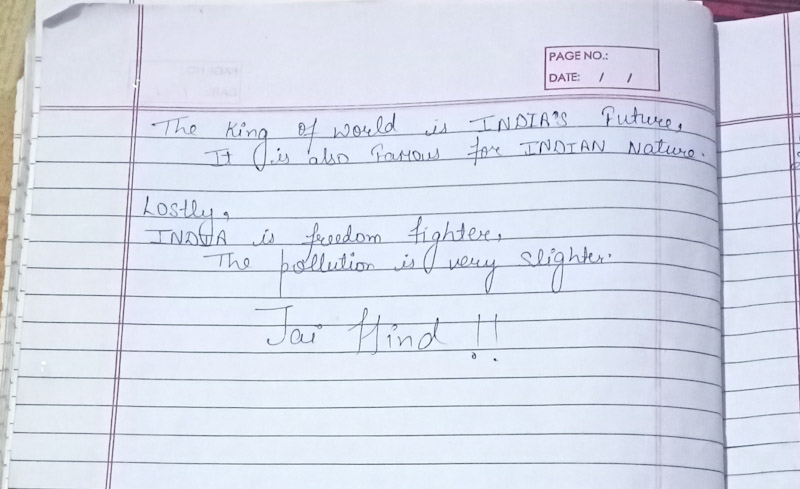 PAGE NO.:
DATE: / /
The King of world is INDIA'S Future,
It is also Famous for INDIAN Nature.
Lostly,
INDIA is freedom fighter,
The pollution is very slighter.
Jai Hind !!